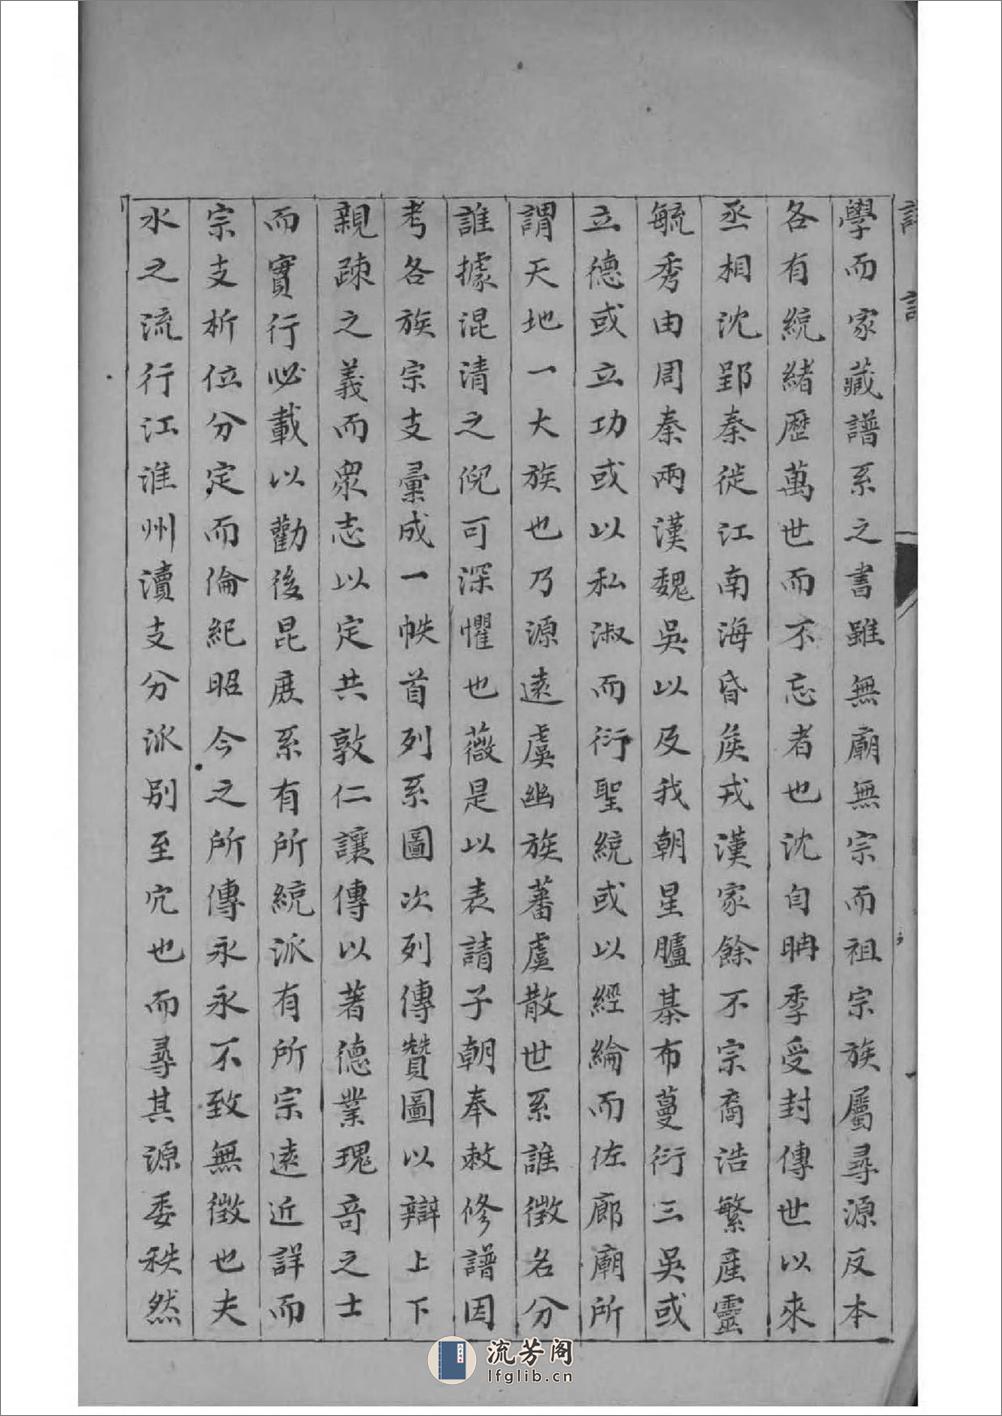 學而家藏譜系之書雖無廟無宗而祖宗族屬尋源反本
各有統緒歷萬世而不忘者也沈自聃季受封傳世以來
丞相沈郢秦徙江南海昏矦戎漢家餘不宗裔浩繁產靈
毓秀由周秦兩漢魏吳以及我朝星臚棊布蔓衍三吳或
立德或立功或以私淑而衍聖統或以經綸而佐廊廟所
謂天地一大族也乃源遠虞幽族蕃虞散世系誰徵名分
誰據混清之倪可深懼也薇是以表請子朝奉敕修譜因
考各族宗支彙成一帙首列系圖次列傳贊圖以辯上下
親疎之義而衆志以定共敦仁讓傳以著德業瑰竒之士
而實行必載以勸後昆庻系有所統派有所宗遠近詳而
宗支析位分定而倫紀昭今之所傳永永不致無徵也夫
水之流行江淮州瀆支分派別至宂也而尋其源委秩然
流芳阁
lfglib.cn